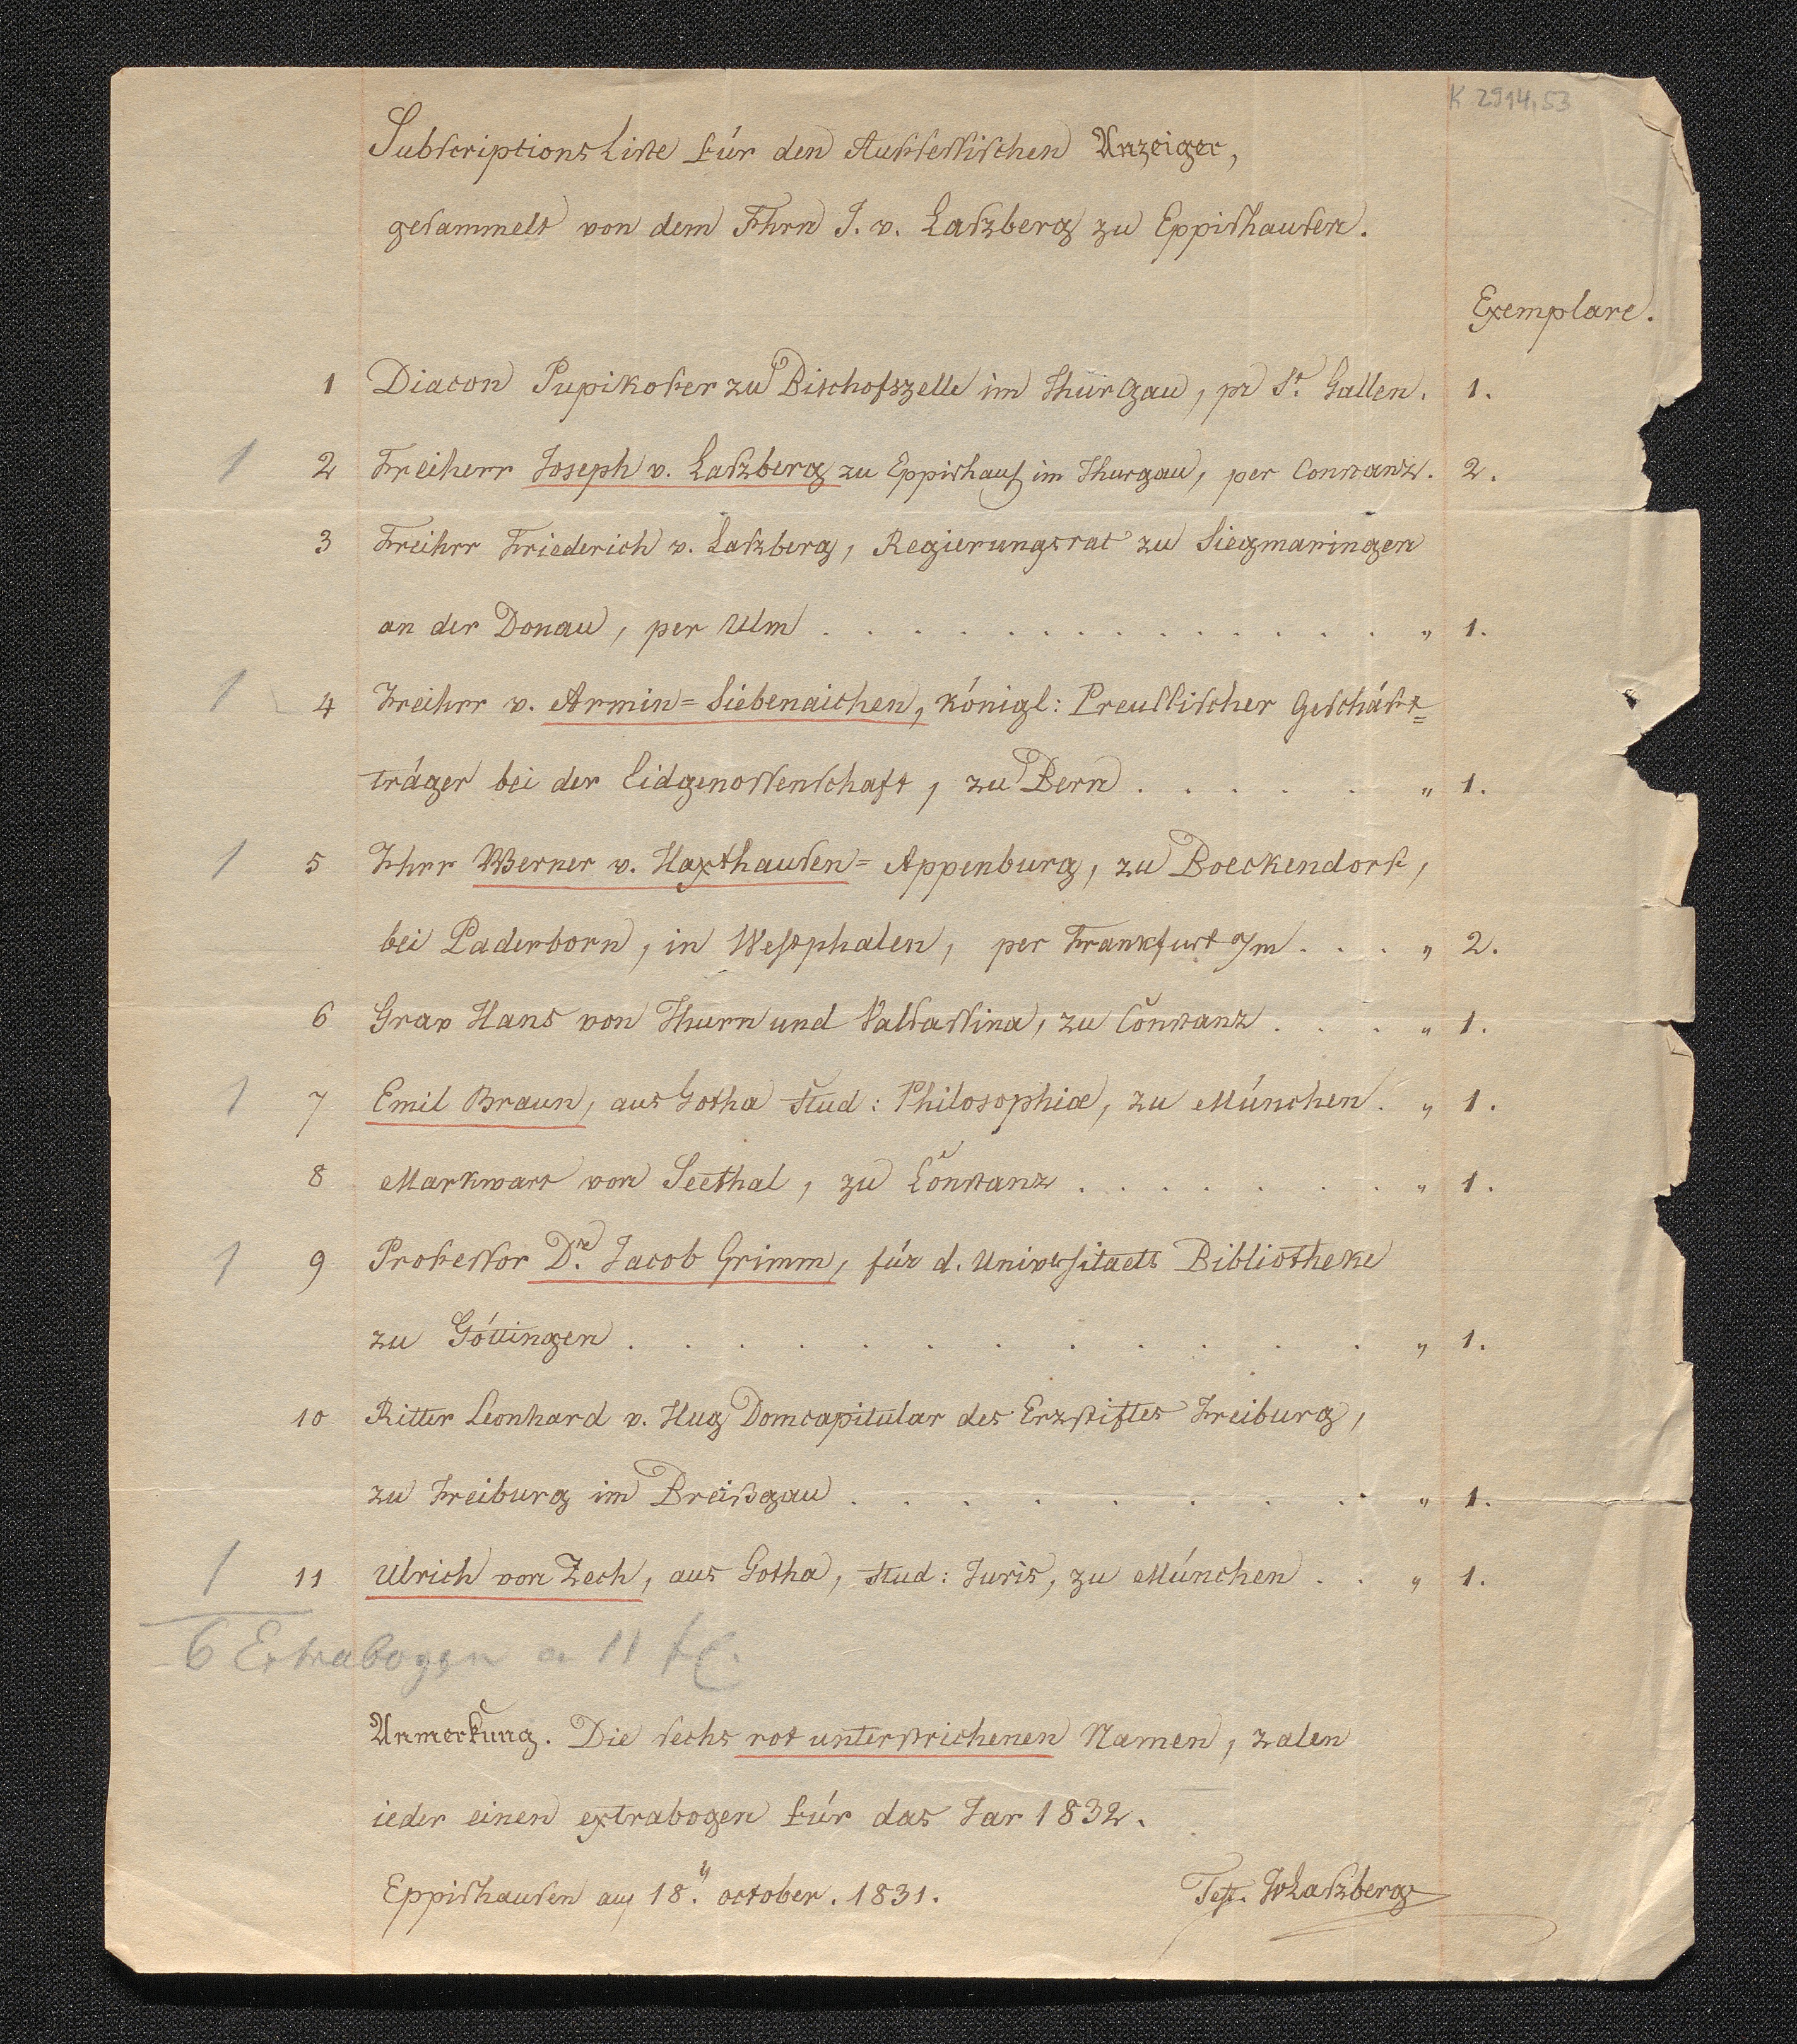 K 2914,53
Subscriptions Liste für den Aufsessischen Anzeiger,
gesammelt von dem Fhrn J. v. Laszberg zu Eppishausen.
Exemplare.
1 Diacon Pupikofer zu Bischofszelle im Thurgau, pr St. Gallen. 1.
1 2 Freiherr Joseph v. Laszberg zu Eppishaus im Thurgau, per Constanz. 2.
3 Freihrr Friederich v. Laszberg, Regierungsrat zu Siegmaringen
an der Donau, per Ulm . . . . . . . . . . . . . . . . „ 1.
1 4 Freihrr v. Armin=Siebenaichen, königl: Preussischer Geschäft=
träger bei der Eidgenossenschaft, zu Bern . . . . . „ 1.
1 5 Fhrr Werner v. Haxthausen=Appenburg, zu Boeckendorf,
bei Paderborn, in Westphalen, per Frankfurt a/m . . . „ 2.
6 Grav Hans von Thurn und Valsassina, zu Constanz . . . „ 1.
1 7 Emil Braun, aus Gotha stud: Philosophiæ, zu München. „ 1.
8 Markwart von Seethal, zu Constanz . . . . . . . . „ 1.
1 9 Professor Dr. Jacob Grimm, für d. Universitaets Bibliotheke
zu Göttingen . . . . . . . . . . . . „ 1.
10 Ritter Leonhard v. Hug Domcapitular des Erzstiftes Freiburg,
zu Freiburg im Breißgau . . . . . . . . . „ 1.
1 11 Ulrich von Zech, aus Gotha, stud: Juris, zu München . . „ 1.
6 Extrabogen a 11 fl.
Anmerkung. Die sechs rot unterstrichenen Namen, zalen
ieder einen extrabogen für das Jar 1832.
Eppishausen am 18.n october. 1831. JvLaszberg